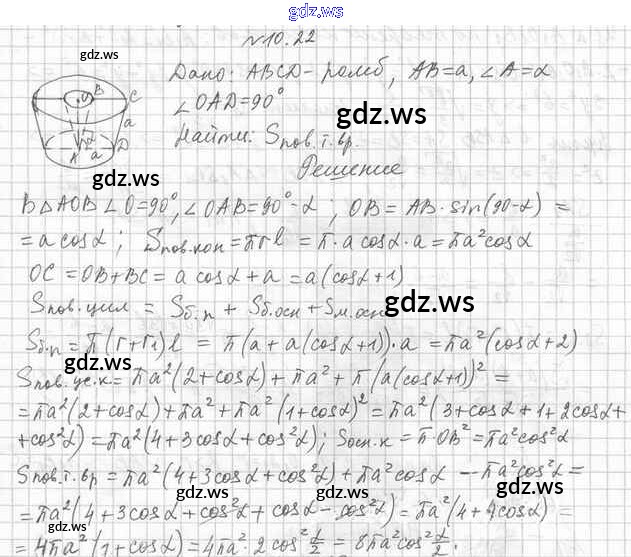 gdz.ws
№10.22
gdz.ws
Дано: ABCD - ромб, AB=a, ∠A=α
∠OAD=90°
gdz.ws
Найти: Sпов.т.вр.
gdz.ws
Решение
B C O a A a D
В △AOB ∠O=90°, ∠OAB=90°-α; OB = AB·sin(90-α) =
gdz.ws
= a cosα; Sпов.кон = πrl = π·a cosα·a = πa²cosα
OC = OB+BC = a cosα + a = a(cosα+1)
Sпов.цил = Sб.п + Sб.осн + Sм.осн
gdz.ws
Sб.п = π(r+r1)l = π(a+a(cosα+1))·a = πa²(cosα+2)
gdz.ws
Sпов.ус.к = πa²(2+cosα) + πa² + π(a(cosα+1))² =
= πa²(2+cosα) + πa² + πa²(1+cosα)² = πa²(3+cosα+1+2cosα+
gdz.ws
+cos²α) = πa²(4+3cosα+cos²α); Sосн.к = π·OB² = πa²cos²α
Sпов.т.вр = πa²(4+3cosα+cos²α) + πa²cosα - πa²cos²α =
gdz.ws
gdz.ws
= πa²(4+3cosα+cos²α+cosα-cos²α) = πa²(4+4cosα) =
= 4πa²(1+cosα) = 4πa²·2cos²α/2 = 8πa²cos²α/2.
gdz.ws
gdz.ws